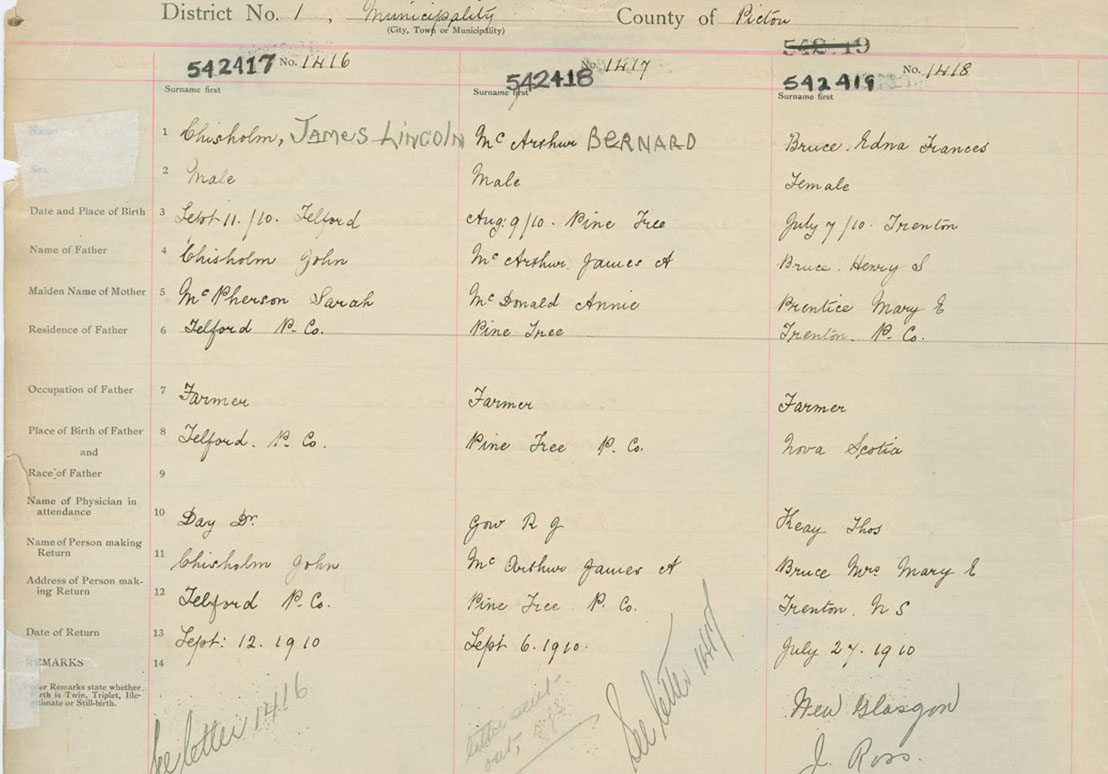 District No. 1, Municipality County of Pictou
(City, Town or Municipality)
542419
542417 No. 1416 542418 No. 1417 542419 No. 1418
Surname first Surname first Surname first
Name 1 Chisholm, JAMES LINCOLN Mc Arthur BERNARD Bruce. Edna Frances
Sex 2 Male Male Female
Date and Place of Birth 3 Sept 11/10. Telford Aug. 9/10. Pine Tree July 7/10. Trenton
Name of Father 4 Chisholm John Mc Arthur James A Bruce. Henry S
Maiden Name of Mother 5 McPherson Sarah McDonald Annie Prentice Mary E
Residence of Father 6 Telford P. Co. Pine Tree Trenton. P. Co.
Occupation of Father 7 Farmer Farmer Farmer
Place of Birth of Father 8 Telford. P. Co. Pine Tree P. Co. Nova Scotia
and
Race of Father 9
Name of Physician in
attendance 10 Day Dr. Gow R G Keay Thos
Name of Person making
Return 11 Chisholm John Mc Arthur James A Bruce Mrs Mary E
Address of Person mak-
ing Return 12 Telford P. Co. Pine Tree. P. Co. Trenton. N S
Date of Return 13 Sept: 12. 1910 Sept 6. 1910. July 27. 1910
REMARKS 14
Under Remarks state whether
Birth is Twin, Triplet, Ille-
gitimate or Still-birth.
See letter 1416
letter sent
out,
See letter 1417
New Glasgow
J. Ross.